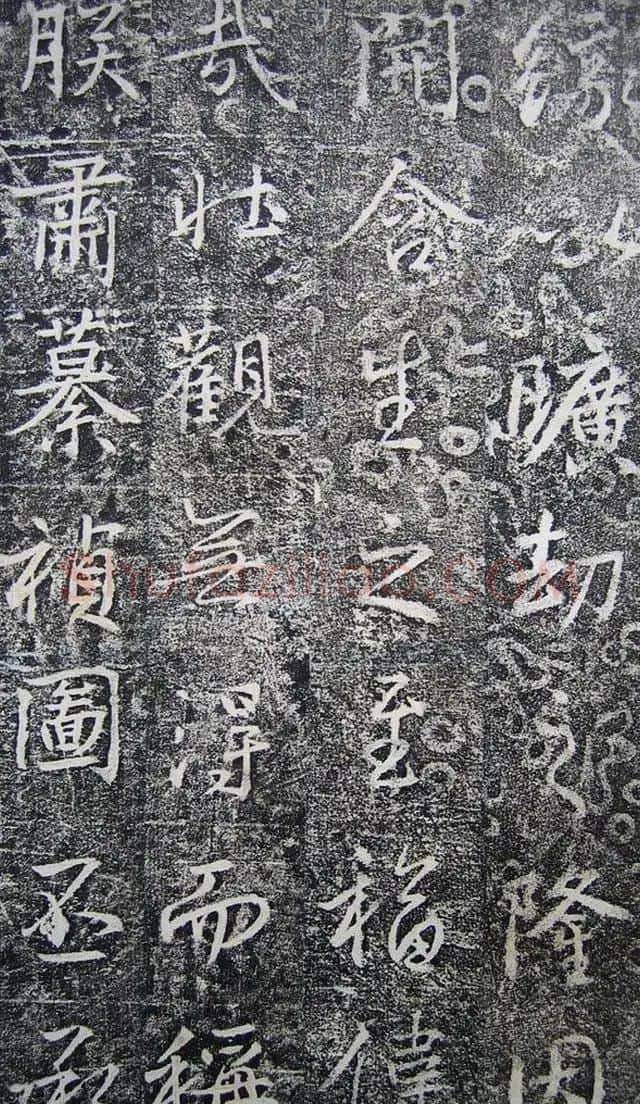 緣以曠劫之隆因
開含生之至福偉
哉壯觀無得而稱
朕肅纂禎圖丕承
Shufaziliao.COM